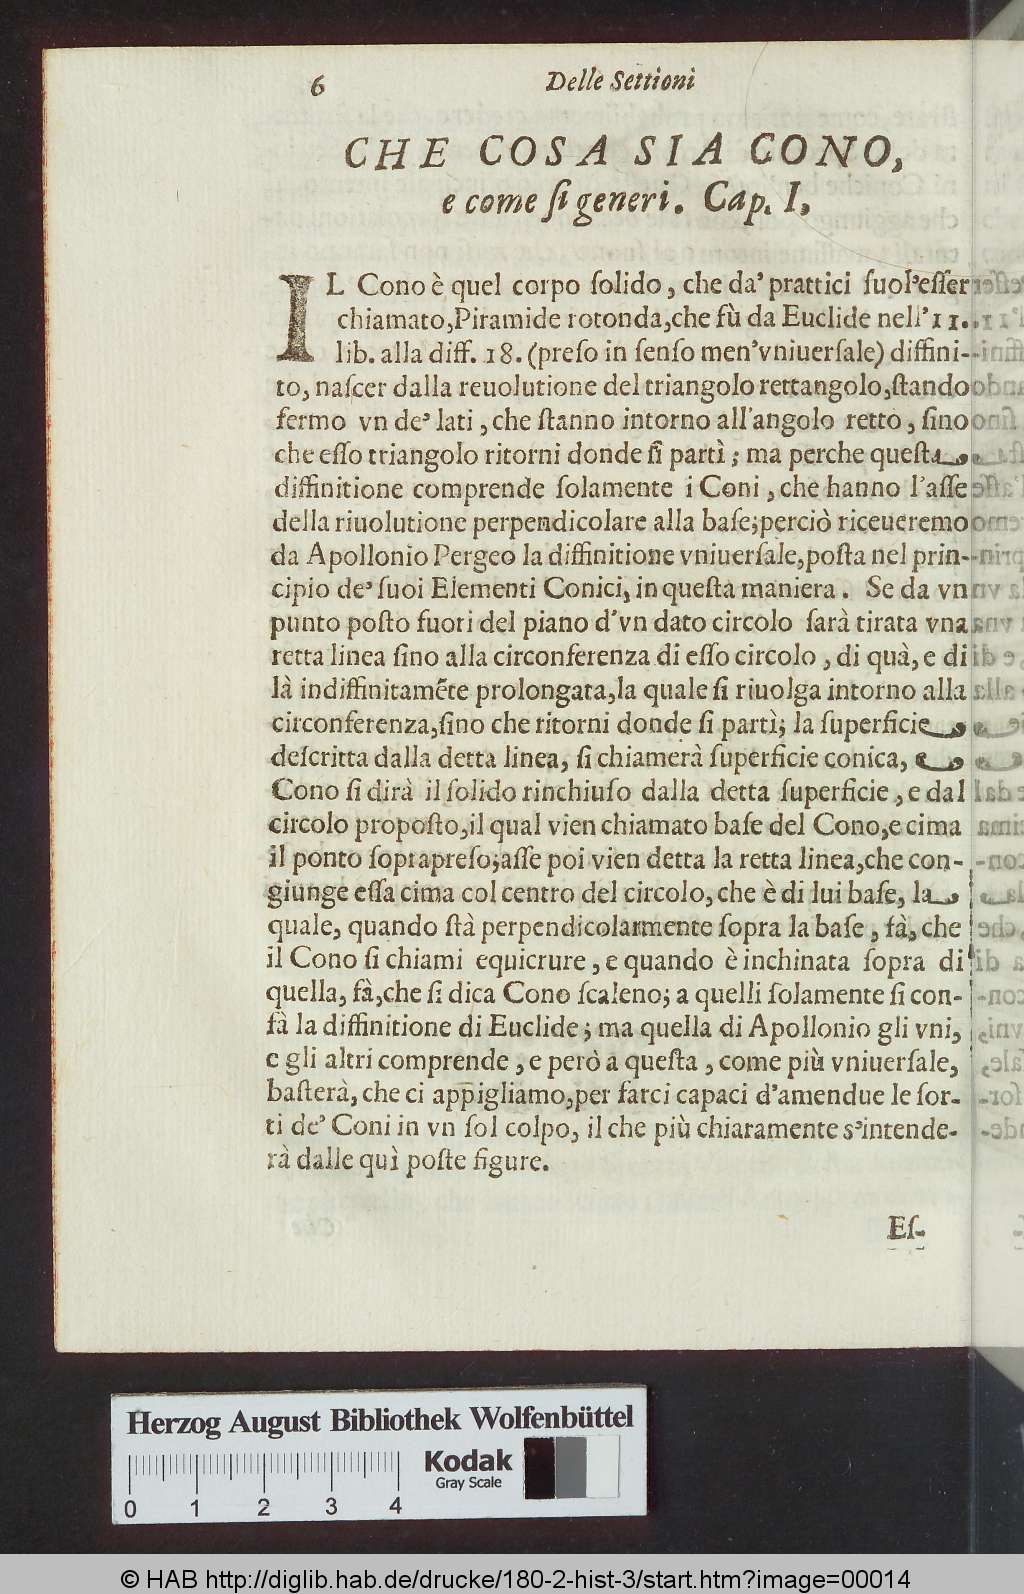 6 Delle Settioni
CHE COSA SIA CONO,
e come ſi generi. Cap. I,
IL Cono è quel corpo ſolido, che da' prattici ſuol'eſſer
chiamato, Piramide rotonda, che fù da Euclide nell' 11.
lib. alla diff. 18. (preſo in ſenſo men' vniuerſale) diffini-
to, naſcer dalla reuolutione del triangolo rettangolo, ſtando
fermo vn de' lati, che ſtanno intorno all'angolo retto, ſino
che eſſo triangolo ritorni donde ſi partì; ma perche queſta
diffinitione comprende ſolamente i Coni, che hanno l'aſſe
della riuolutione perpendicolare alla baſe; perciò riceueremo
da Apollonio Pergeo la diffinitione vniuerſale, poſta nel prin-
cipio de' ſuoi Elementi Conici, in queſta maniera. Se da vn
punto poſto fuori del piano d'vn dato circolo ſarà tirata vna
retta linea ſino alla circonferenza di eſſo circolo, di quà, e di
là indiffinitamẽte prolongata, la quale ſi riuolga intorno alla
circonferenza, ſino che ritorni donde ſi partì; la ſuperficie
deſcritta dalla detta linea, ſi chiamerà ſuperficie conica, e
Cono ſi dirà il ſolido rinchiuſo dalla detta ſuperficie, e dal
circolo propoſto, il qual vien chiamato baſe del Cono, e cima
il ponto ſoprapreſo; aſſe poi vien detta la retta linea, che con-
giunge eſſa cima col centro del circolo, che è di lui baſe, la
quale, quando ſtà perpendicolarmente ſopra la baſe, fà, che
il Cono ſi chiami equicrure, e quando è inchinata ſopra di
quella, fà, che ſi dica Cono ſcaleno; a quelli ſolamente ſi con-
fà la diffinitione di Euclide; ma quella di Apollonio gli vni,
e gli altri comprende, e però a queſta, come più vniuerſale,
baſterà, che ci appigliamo, per farci capaci d'amendue le ſor-
ti de' Coni in vn ſol colpo, il che più chiaramente s'intende-
rà dalle quì poſte figure.
Eſ-
Herzog August Bibliothek Wolfenbüttel
Kodak
Gray Scale
0 1 2 3 4
© HAB http://diglib.hab.de/drucke/180-2-hist-3/start.htm?image=00014